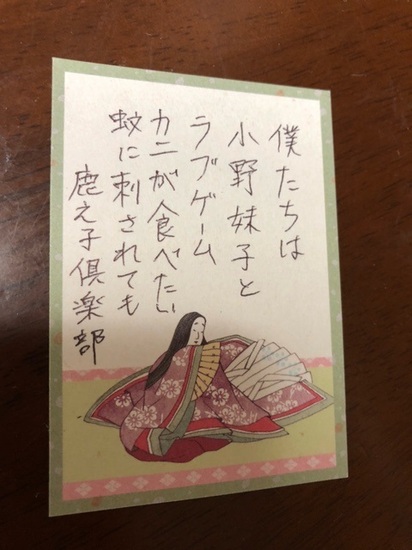 僕たちは
小野妹子と
ラブゲーム
カニが食べたい
蚊に刺されても
鹿え子倶楽部